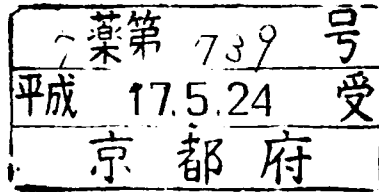 7薬第 739 号
平成 17.5.24 受
京都府